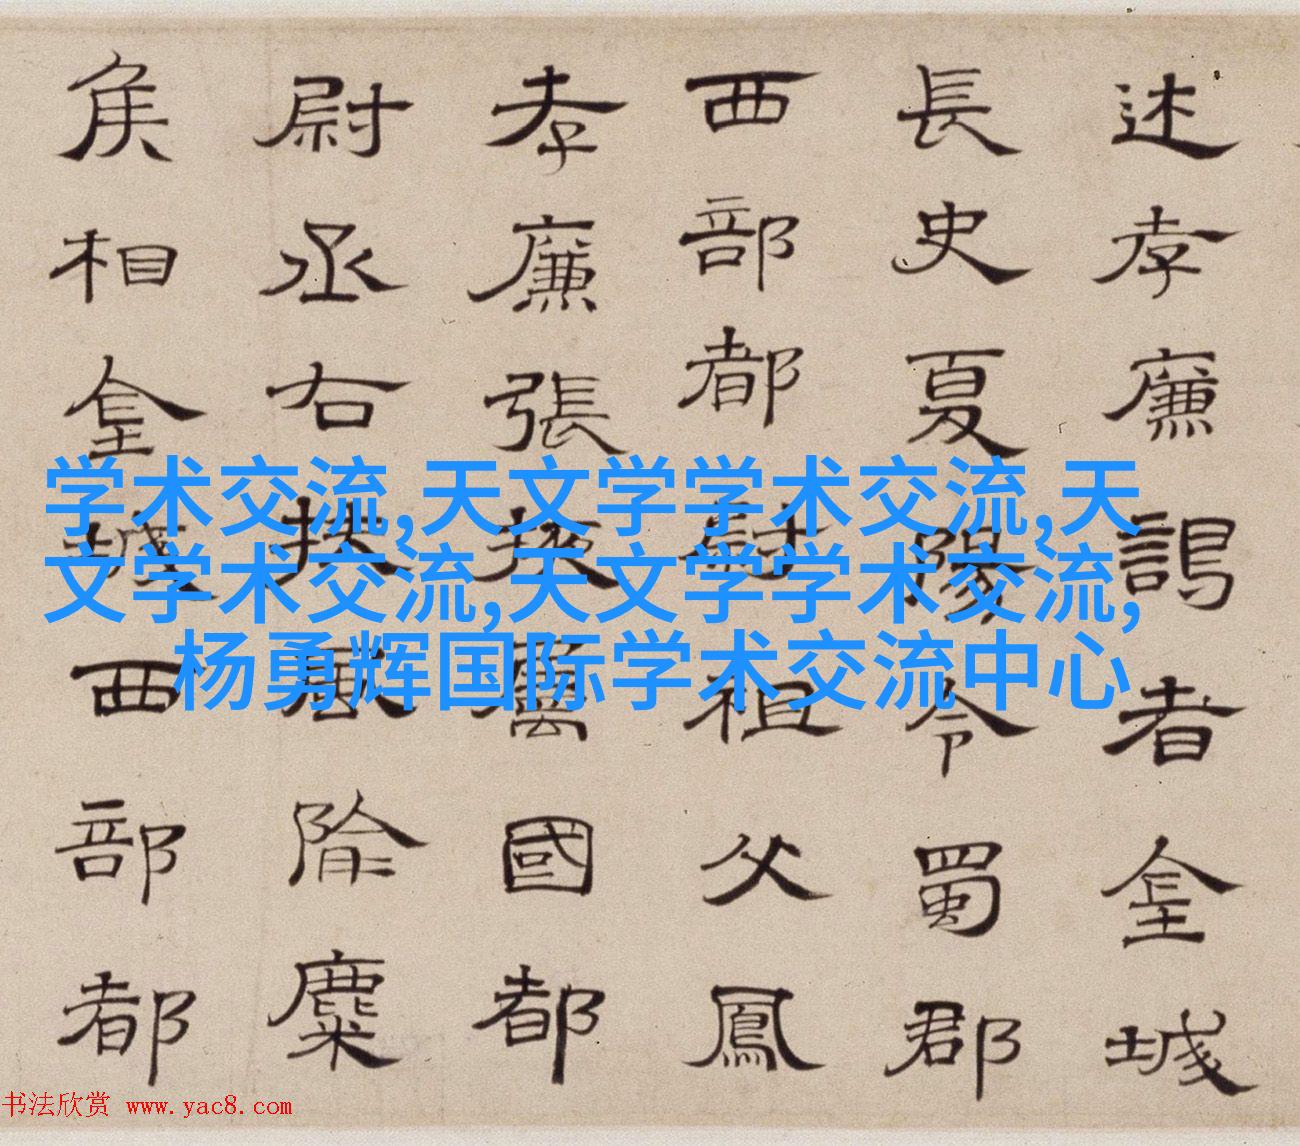 述孝廉謁者金城
長史夏陽令蜀郡
西部都尉祖父鳳
孝廉張掖屬國都
尉丞右扶風隃麋
侯相金城西部都
学术交流,天文学学术交流,天
文学术交流,天文学学术交流,
杨勇辉国际学术交流中心
书法欣赏 www.yac8.com